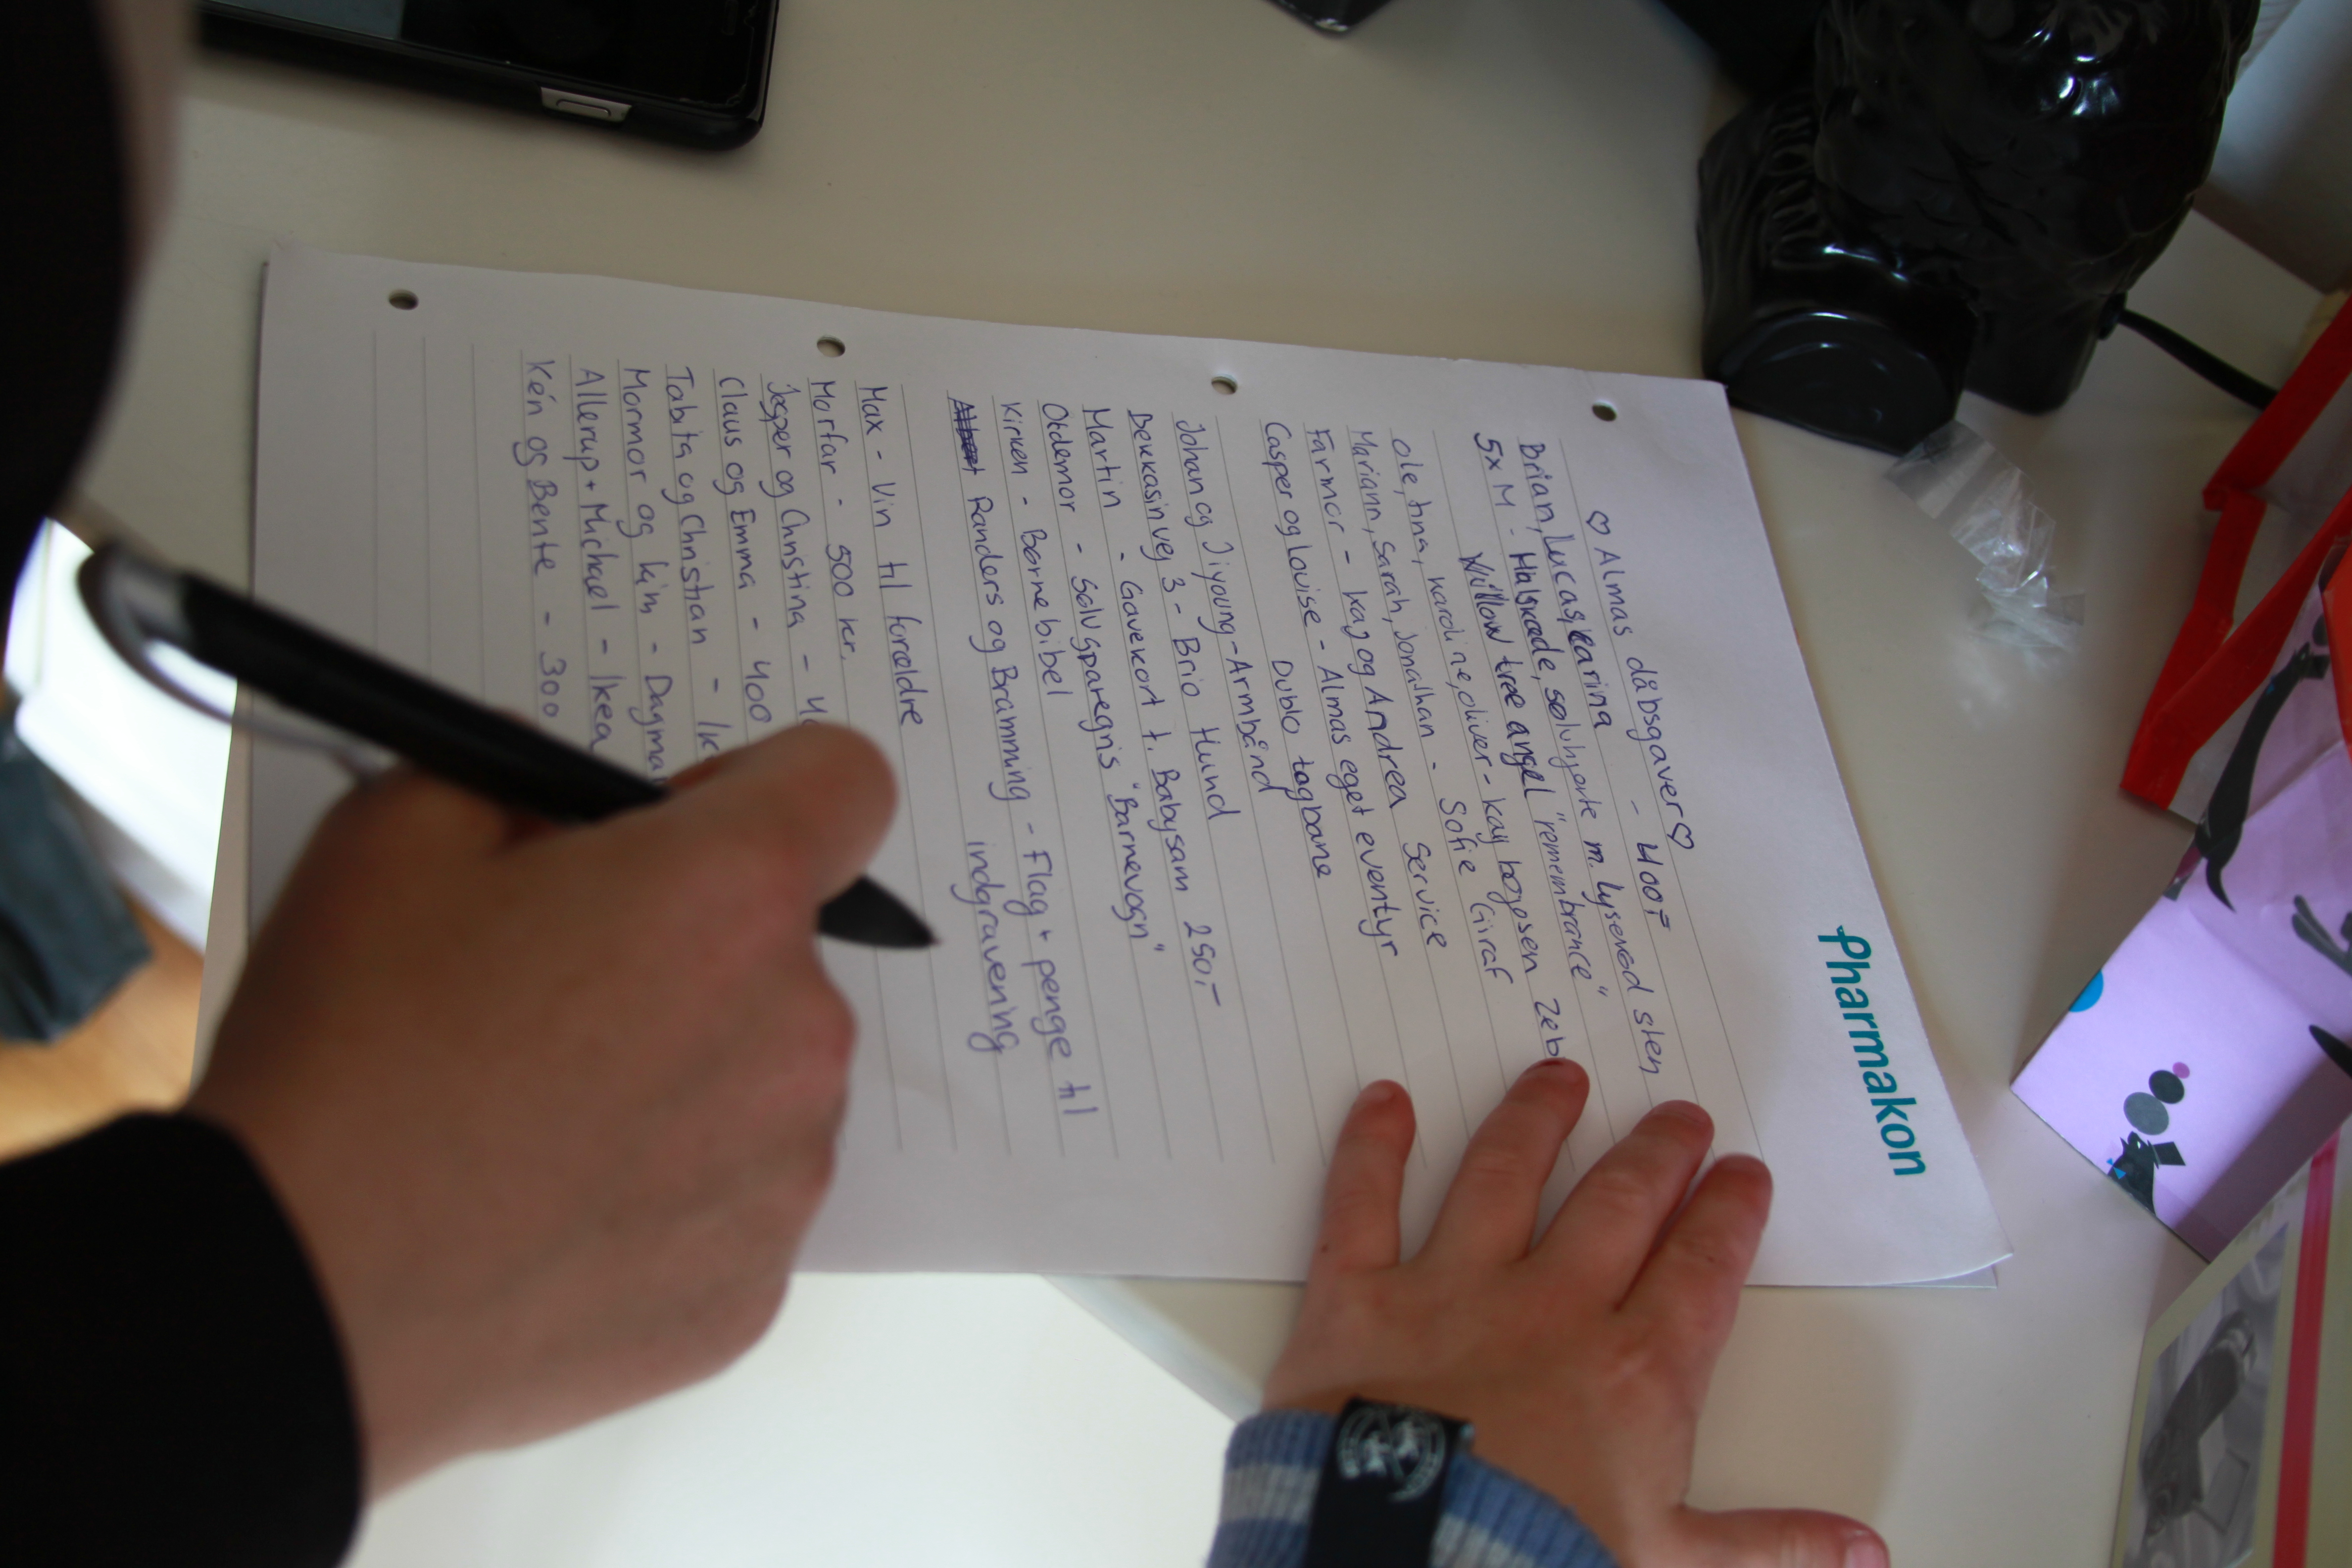 Pharmakon
♡ Almas dåbsgaver ♡
Brian, Lucas, Karina - 400,-
5x M - Halskæde, sølvhjerte m. lyserød sten
Willow tree angel "remembrance"
Ole, tina, Karoline, oliver - kay bojesen zeb
Mariann, Sarah, Jonathan - Sofie Giraf
Farmor - kaj og Andrea Service
Casper og Louise - Almas eget eventyr
Dublo togbane
Johan og Jiyoung - Armbånd
Bekkasinvej 3 - Brio Hund
Martin - Gavekort t. Babysam 250,-
Oldemor - Sølvsparegris "Barnevogn"
Kirken - Børnebibel
Randers og Bramming - Flag + penge til
indgravening
Max - Vin til forældre
Morfar - 500 kr.
Jesper og Christina - 40
Claus og Emma - 400
Tabita og Christian - Ik
Mormor og Kim - Dagmar
Allerup + Michael - Ikea
Kén og Bente - 300